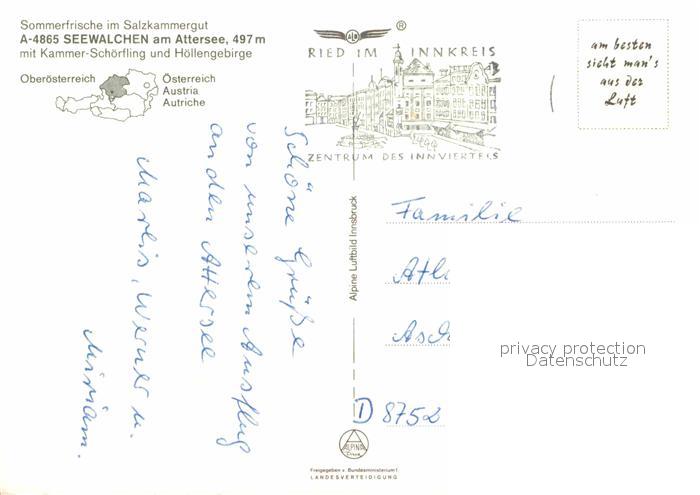 Sommerfrische im Salzkammergut
A-4865 SEEWALCHEN am Attersee, 497 m
mit Kammer-Schörfling und Höllengebirge
Oberösterreich
Österreich
Austria
Autriche
®
RIED IM INNKREIS
ZENTRUM DES INNVIERTELS
am besten
sieht man's
aus der
Luft
Schöne Grüße
von unserem Ausflug
an den Attersee
Marlis, Werner u.
Miriam.
Alpine Luftbild Innsbruck
Familie
Atl
Asch
privacy protection
Datenschutz
D 8752
ALPINA
Druck
Freigegeben v. Bundesministerium f.
LANDESVERTEIDIGUNG